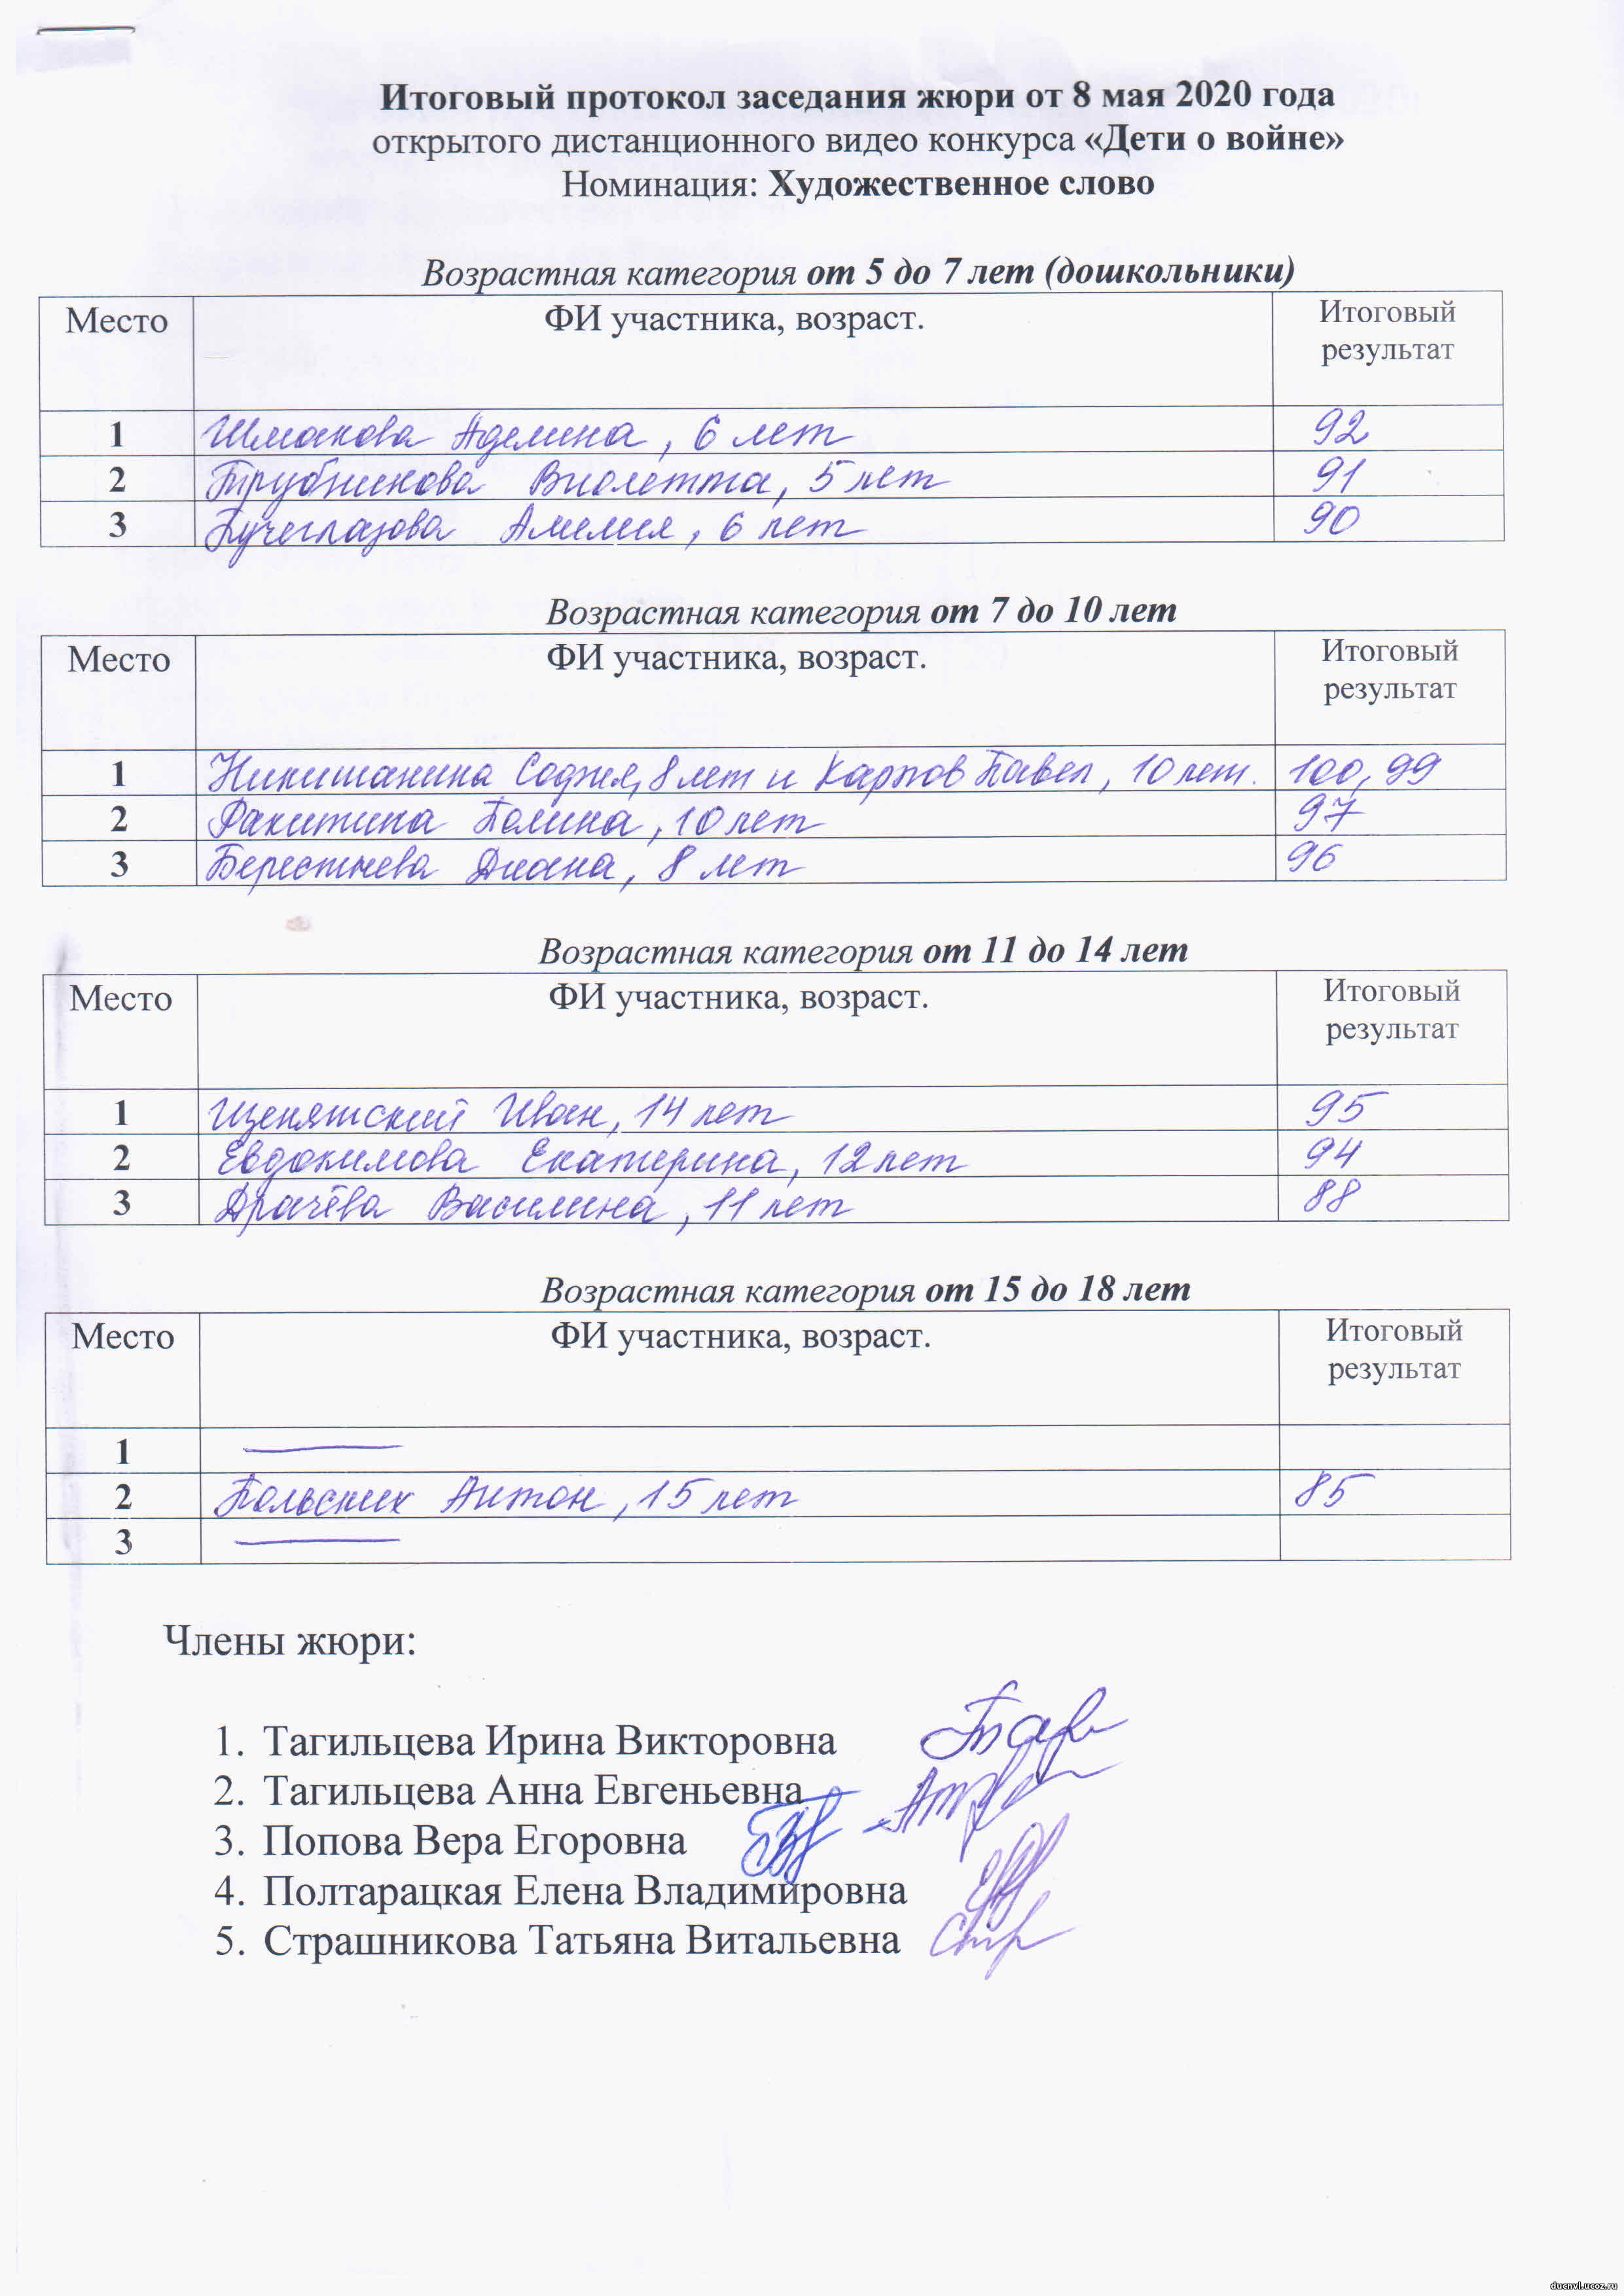 Итоговый протокол заседания жюри от 8 мая 2020 года
открытого дистанционного видео конкурса «Дети о войне»
Номинация: Художественное слово
Возрастная категория от 5 до 7 лет (дошкольники)
Место ФИ участника, возраст. Итоговый результат
1 Шмакова Аделина, 6 лет 92
2 Трубникова Виолетта, 5 лет 91
3 Пучеглазова Амилия, 6 лет 90
Возрастная категория от 7 до 10 лет
Место ФИ участника, возраст. Итоговый результат
1 Никишанина София, 8 лет и Карпов Павел, 10 лет. 100, 99
2 Ракитина Полина, 10 лет 97
3 Берестнева Диана, 8 лет 96
Возрастная категория от 11 до 14 лет
Место ФИ участника, возраст. Итоговый результат
1 Щенятский Иван, 14 лет 95
2 Евдокимова Екатерина, 12 лет 94
3 Драчёва Василина, 11 лет 88
Возрастная категория от 15 до 18 лет
Место ФИ участника, возраст. Итоговый результат
1
2 Польских Антон, 15 лет 85
3
Члены жюри:
1. Тагильцева Ирина Викторовна
2. Тагильцева Анна Евгеньевна
3. Попова Вера Егоровна
4. Полтарацкая Елена Владимировна
5. Страшникова Татьяна Витальевна
ducnvl.ucoz.ru